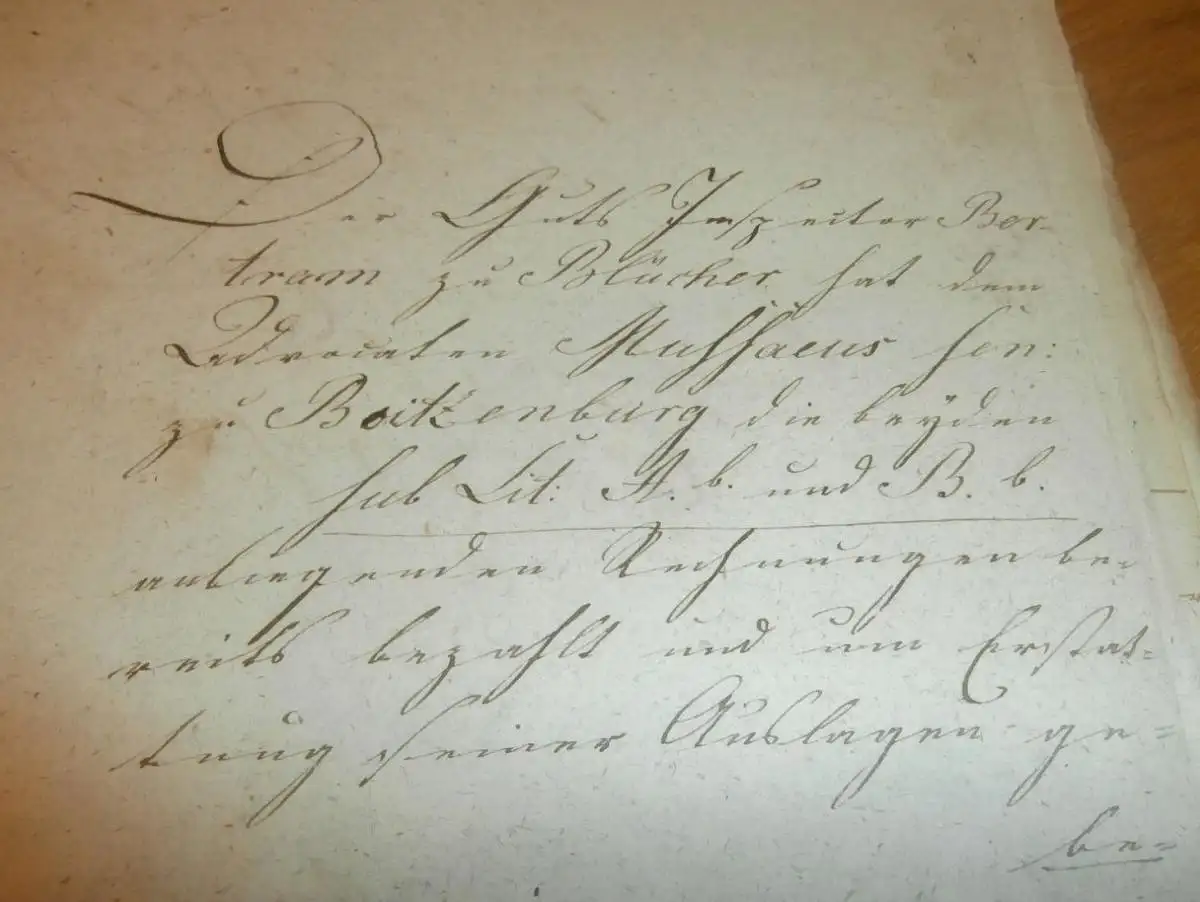 Der Guts Inspector Ber-
tram zu Blücher hat dem
Advocaten Mussäeus sen:
zu Boitzenburg die beyden
sub Lit: A. b. und B. b.
anliegenden Rechnungen be-
reits bezahlt und um Erstat-
tung seiner Auslagen ge-
be-